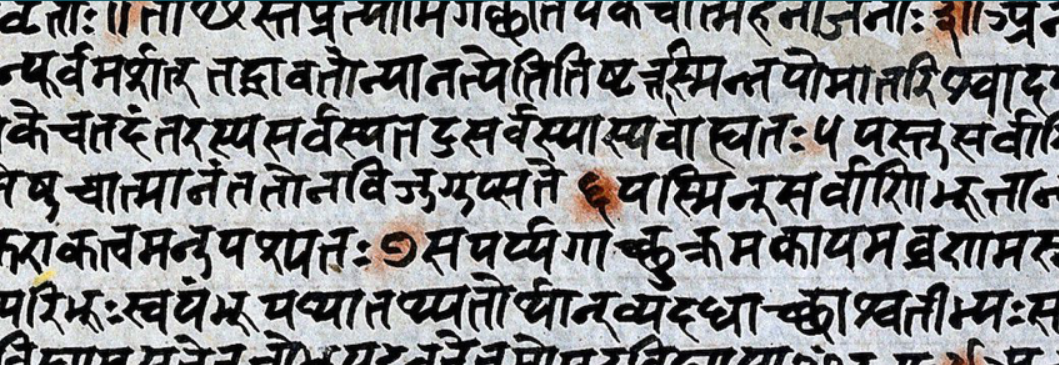 वृताः ॥ तांस्ते प्रेत्याभिगच्छंति ये के चात्महनो जनाः ३ ॥
न्पूर्वमर्शत् तद्धावतोन्यानत्येति तिष्ठत्तस्मिन्नपो मातरिश्वा द
के च तदंतरस्य सर्वस्य तदु सर्वस्यास्य बाह्यतः ५ यस्तु सर्वाणि
तेषु चात्मानं ततो न विजुगुप्सते ६ यस्मिन्त्सर्वाणि भूतान
कत्वमनुपश्यतः ७ स पर्य्यगाच्छुक्रमकायमव्रणमस
परिभूः स्वयंभू यथ्यातथ्यतोर्थान्व्यदधाच्छाश्वतीभ्यः स